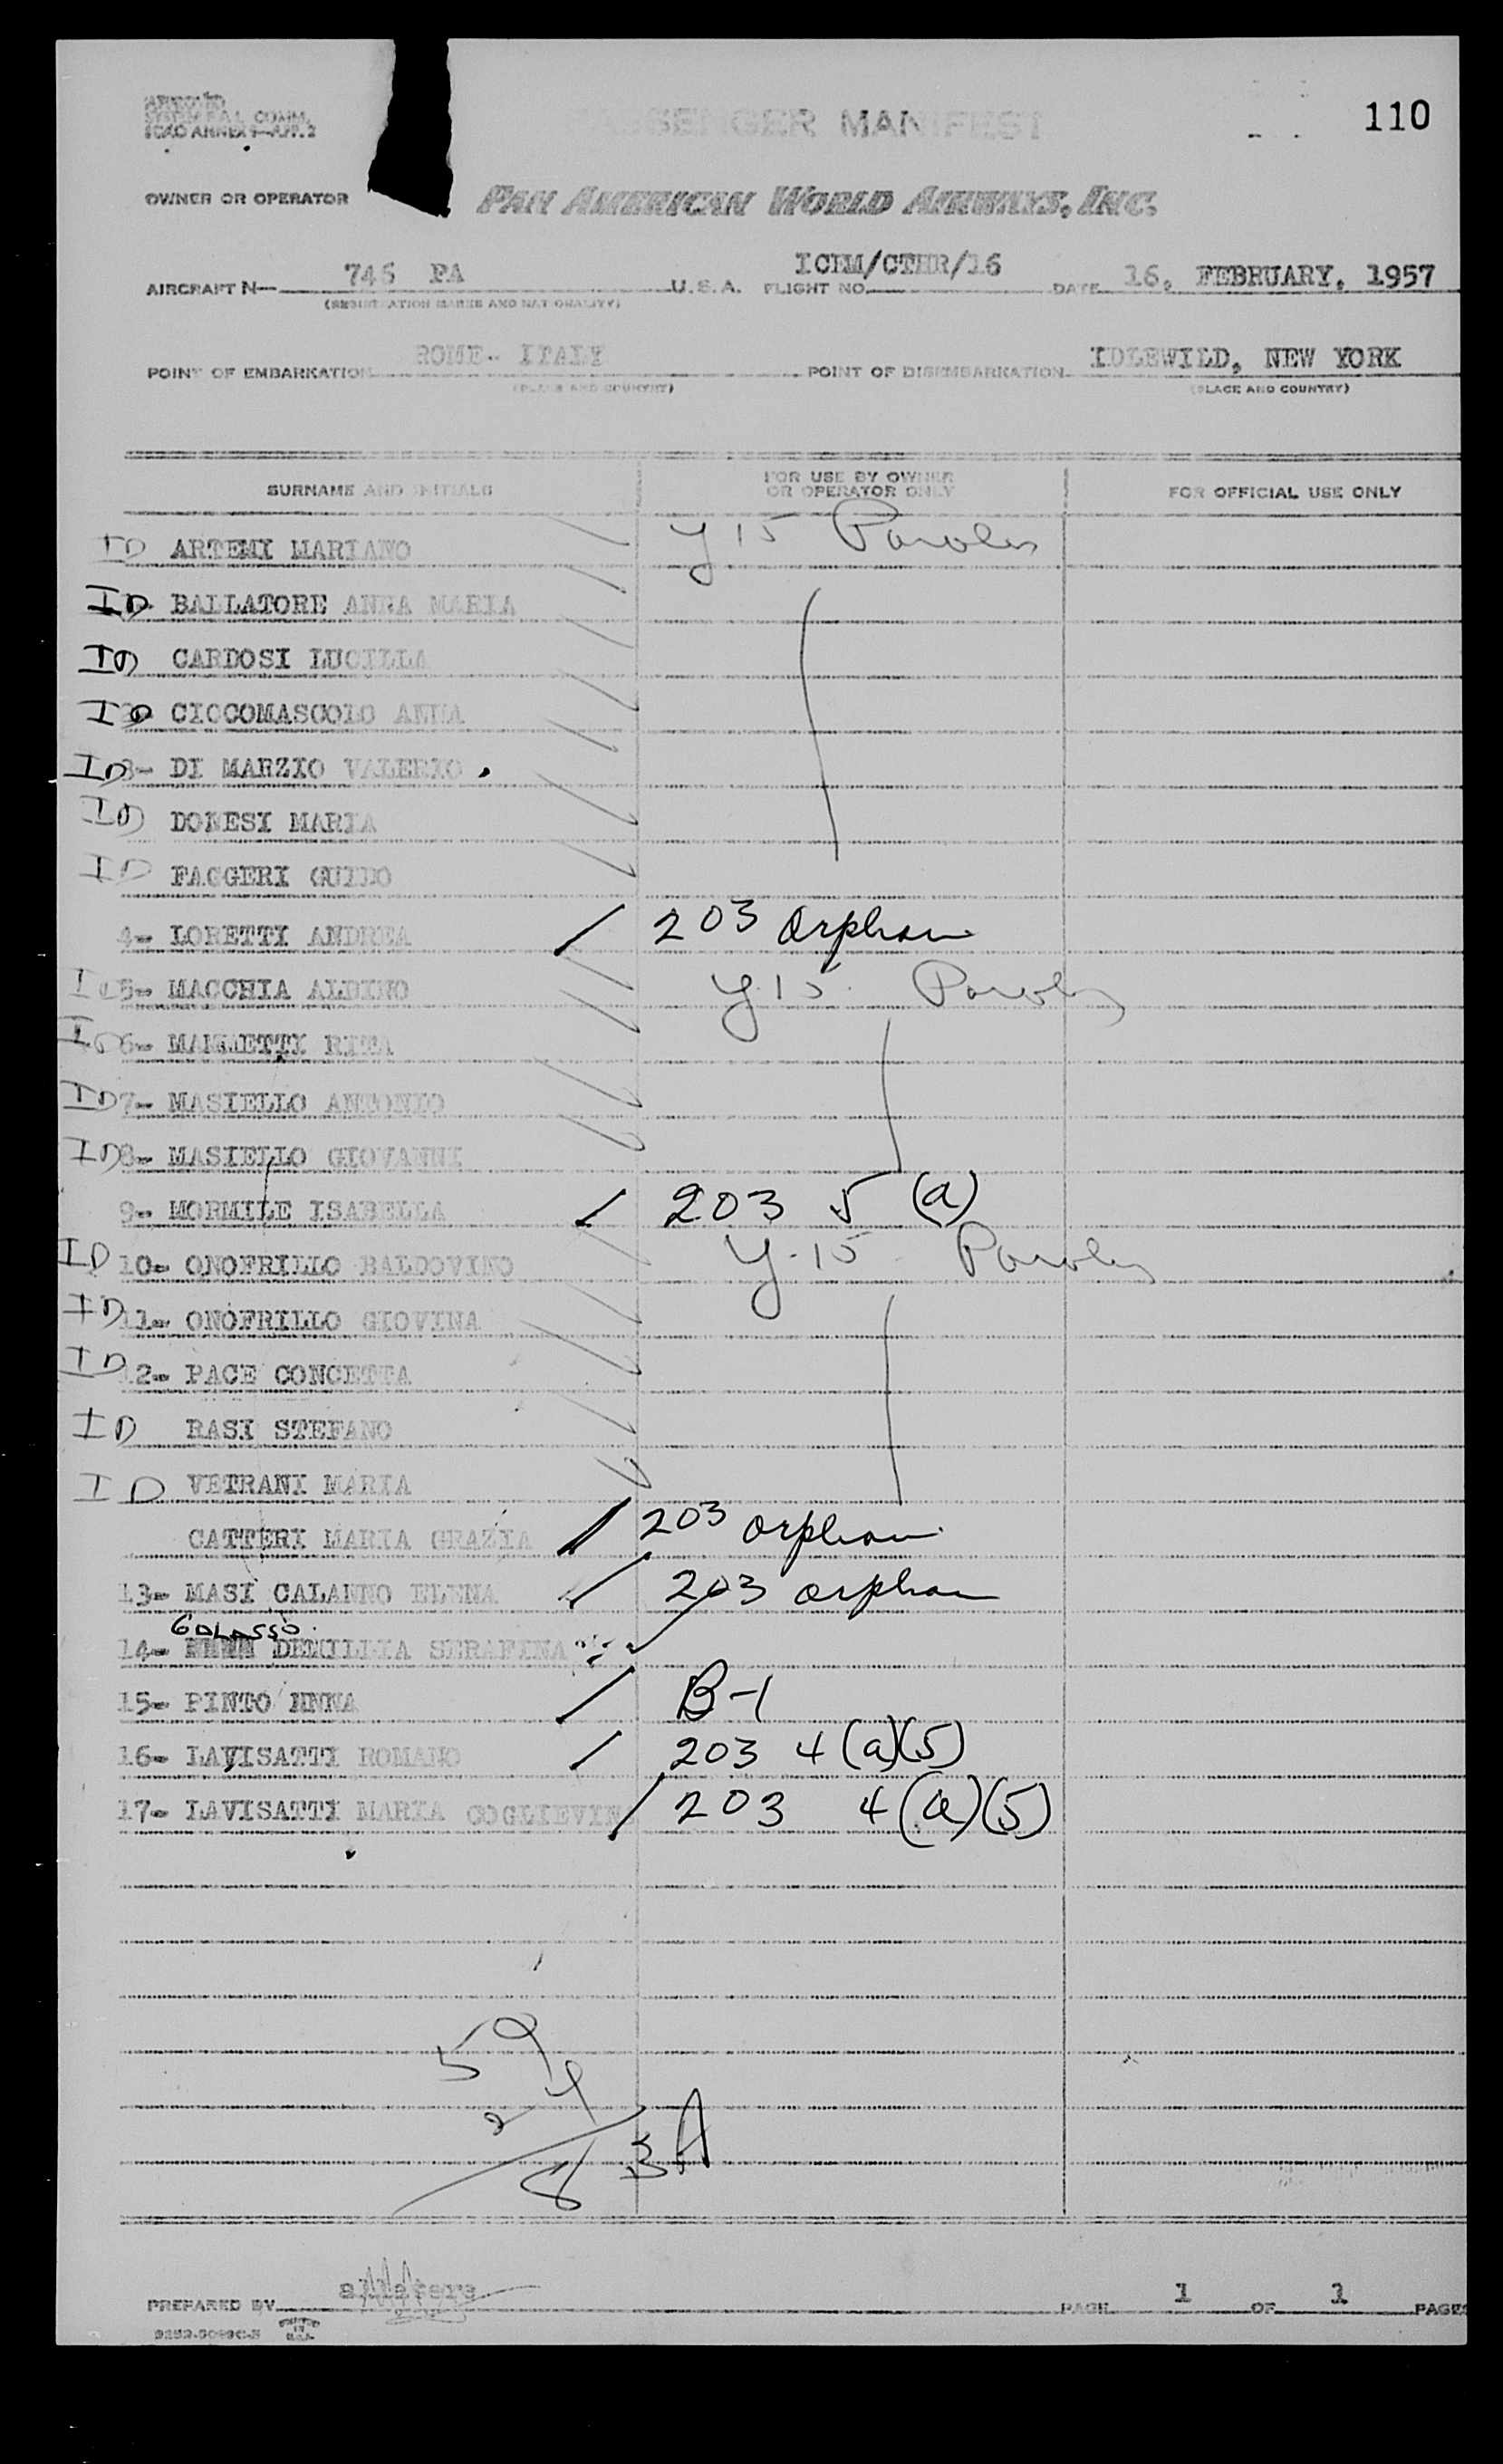 COMM.
ICAO ANNEX 9—APP. 2
PASSENGER MANIFEST
110
OWNER OR OPERATOR PAN AMERICAN WORLD AIRWAYS, INC.
AIRCRAFT N— 746 PA U.S.A. FLIGHT NO. ICEM/CTHR/16 DATE 16, FEBRUARY, 1957
(REGISTRATION MARKS AND NATIONALITY)
POINT OF EMBARKATION ROME- ITALY POINT OF DISEMBARKATION IDLEWILD, NEW YORK
(PLACE AND COUNTRY) (PLACE AND COUNTRY)
SURNAME AND INITIALS FOR USE BY OWNER OR OPERATOR ONLY FOR OFFICIAL USE ONLY
ID ARTEMI MARIANO Y15 Parolee
ID BALLATORE ANNA MARIA
ID CARDOSI LUCILLA
ID CIOCOMASCOLO ANNA
ID 3- DI MARZIO VALERIO
ID DONESI MARIA
ID FAGGERI GUIDO
4- LORETTI ANDREA 203 Orphan
ID 5- MACCHIA ALBINO Y15 Parolee
ID 6- MAMMETTI RITA
ID 7- MASIELLO ANTONIO
ID 8- MASIELLO GIOVANNI
9- MORMILE ISABELLA 203 5 (a)
ID 10- ONOFRILLO BALDOVINO Y-15 Parolee
ID 11- ONOFRILLO GIOVINA
ID 12- PACE CONCETTA
ID RASI STEFANO
ID VETRANI MARIA
CATTERI MARIA GRAZIA 203 orphan
13- MASI CALANNO ELENA 203 orphan
GOLASSO
14- SERAFINA
15- PINTO ANNA B-1
16- LAVISATTI ROMANO 203 4(a)(5)
17- LAVISATTI MARIA COGLIEVIN 203 4(a)(5)
5 9
2 4
8 3A
PREPARED BY PAGE 1 OF 1 PAGES